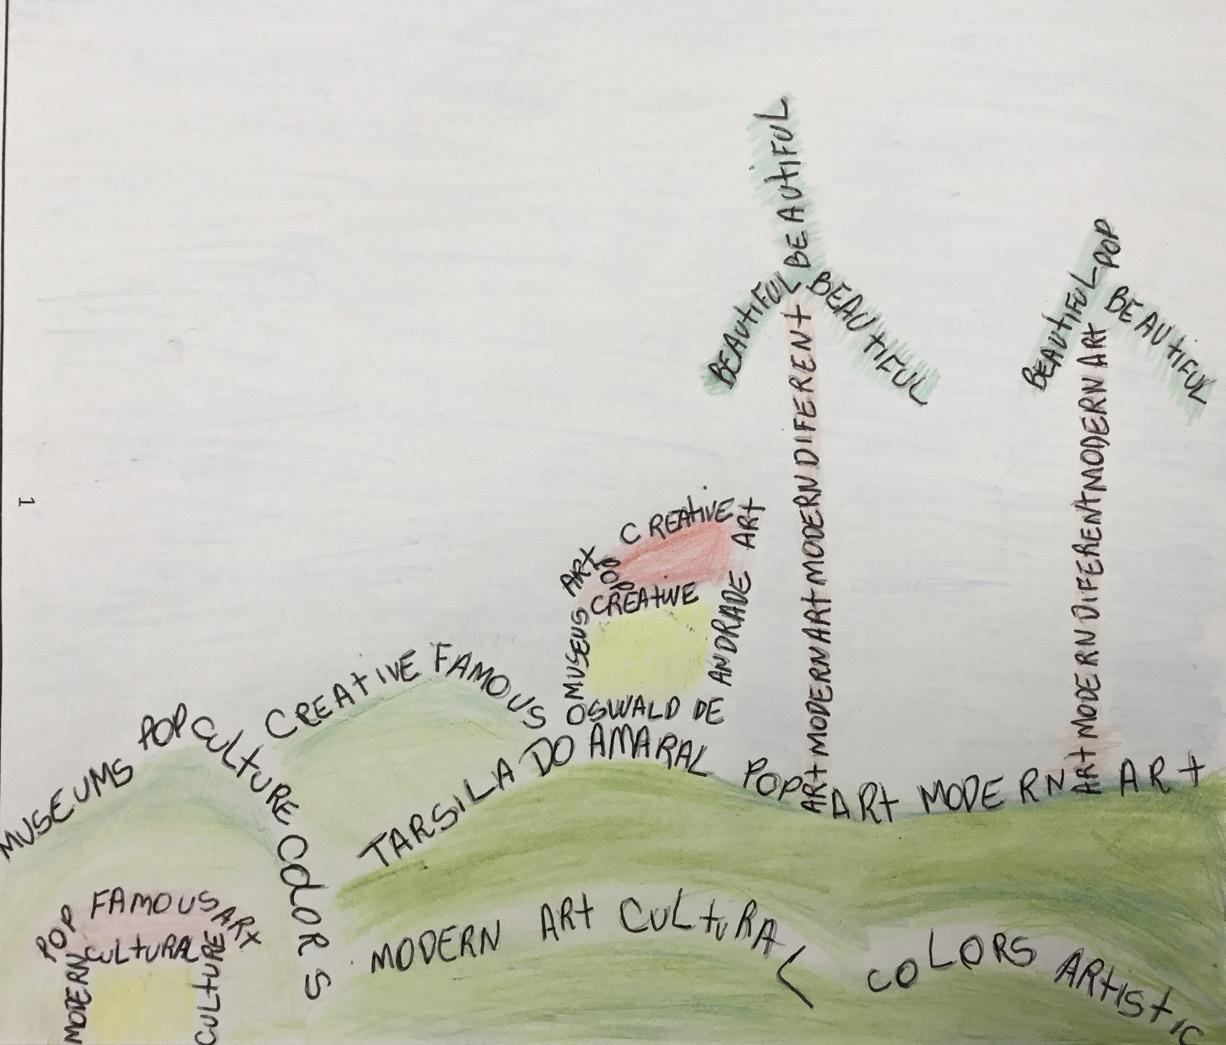 BEAUTIFUL
BEAUTIFUL
BEAUTIFUL
ART MODERN ART MODERN DIFERENT
BEAUTIFUL POP
BEAUTIFUL
ART MODERN DIFERENT MODERN ART
1
CREATIVE
ART
ART
POP
CREATIVE
MUSEUS
ANDRADE
OSWALD DE
CREATIVE FAMOUS
MUSEUMS POP CULTURE COLORS
TARSILA DO AMARAL POP ART MODERN ART
POP FAMOUS ART
CULTURAL
MODERN
CULTURE
MODERN ART CULTURAL COLORS ARTISTIC